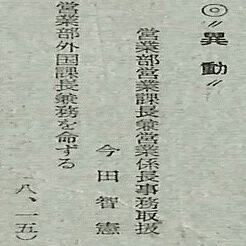 ◎〃異動〃
営業部営業課長兼営業係長事務取扱
今田智憲
営業部外国課長兼務を命ずる
八、一五)